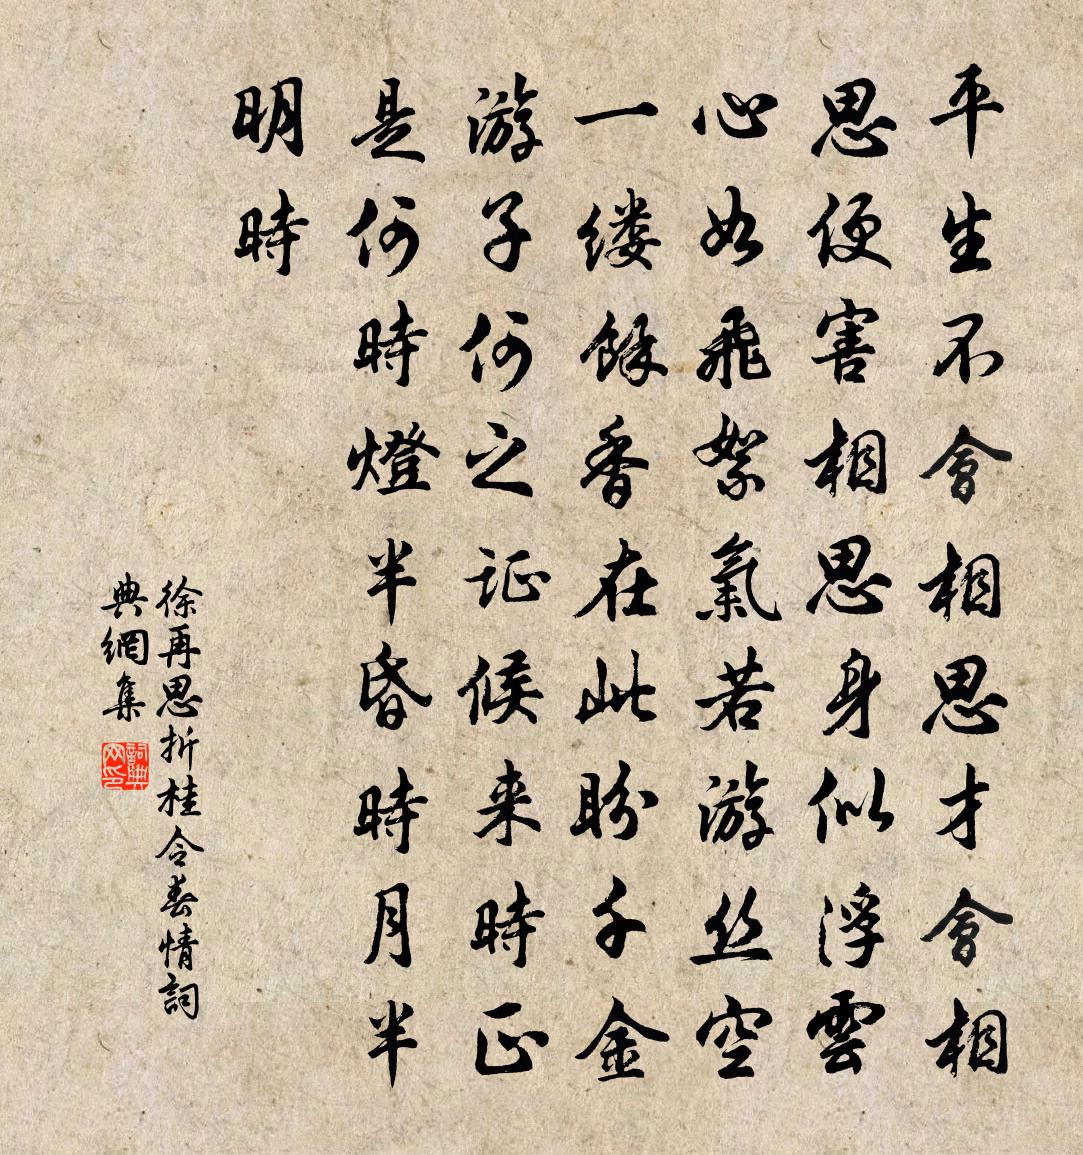 平生不會相思才會相
思便害相思身似浮雲
心如飛絮氣若游丝空
一缕餘香在此盼千金
游子何之证候来時正
是何時燈半昏時月半
明時
徐再思折桂令春情詞
典網集
詞典
网印